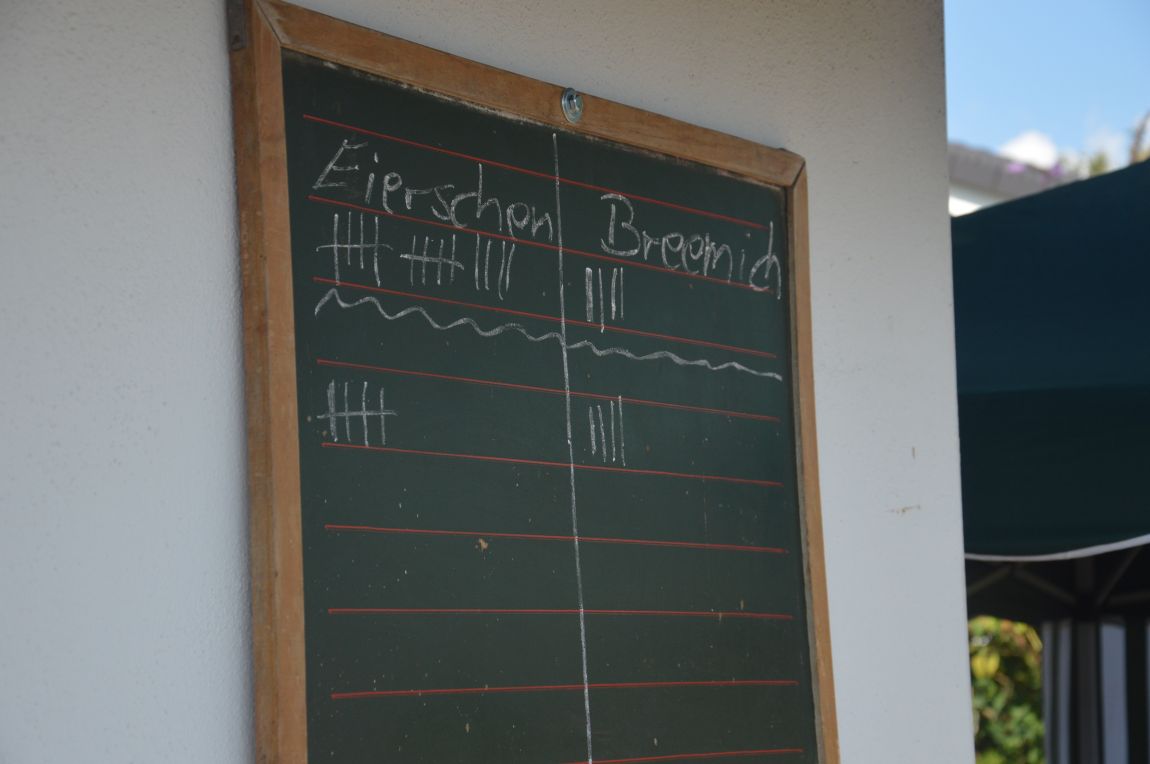 Eierschen Breemich